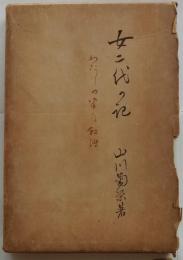 女二代の記
わたしの半自叙伝
山川菊栄著